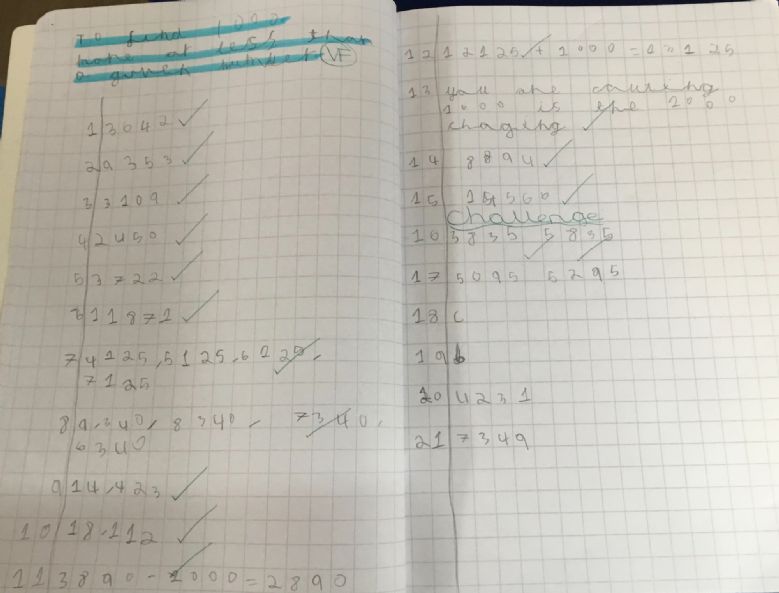 To find 1000
more or less than
a given number VF
1 3042
2 9353
3 3109
4 2450
5 3722
6 11871
7 4125, 5125, 6125,
7125
8 9,340, 8340, 7340,
6340
9 14,423
10 18,112
11 3890 - 1000 = 2890
12 12125 + 1000 = 125
13 you are
1000 is the 2000
chaging
14 8894
15 15560
Challenge
16 3835 5835
17 5095 5295
18 c
19 b
20 4231
21 7349